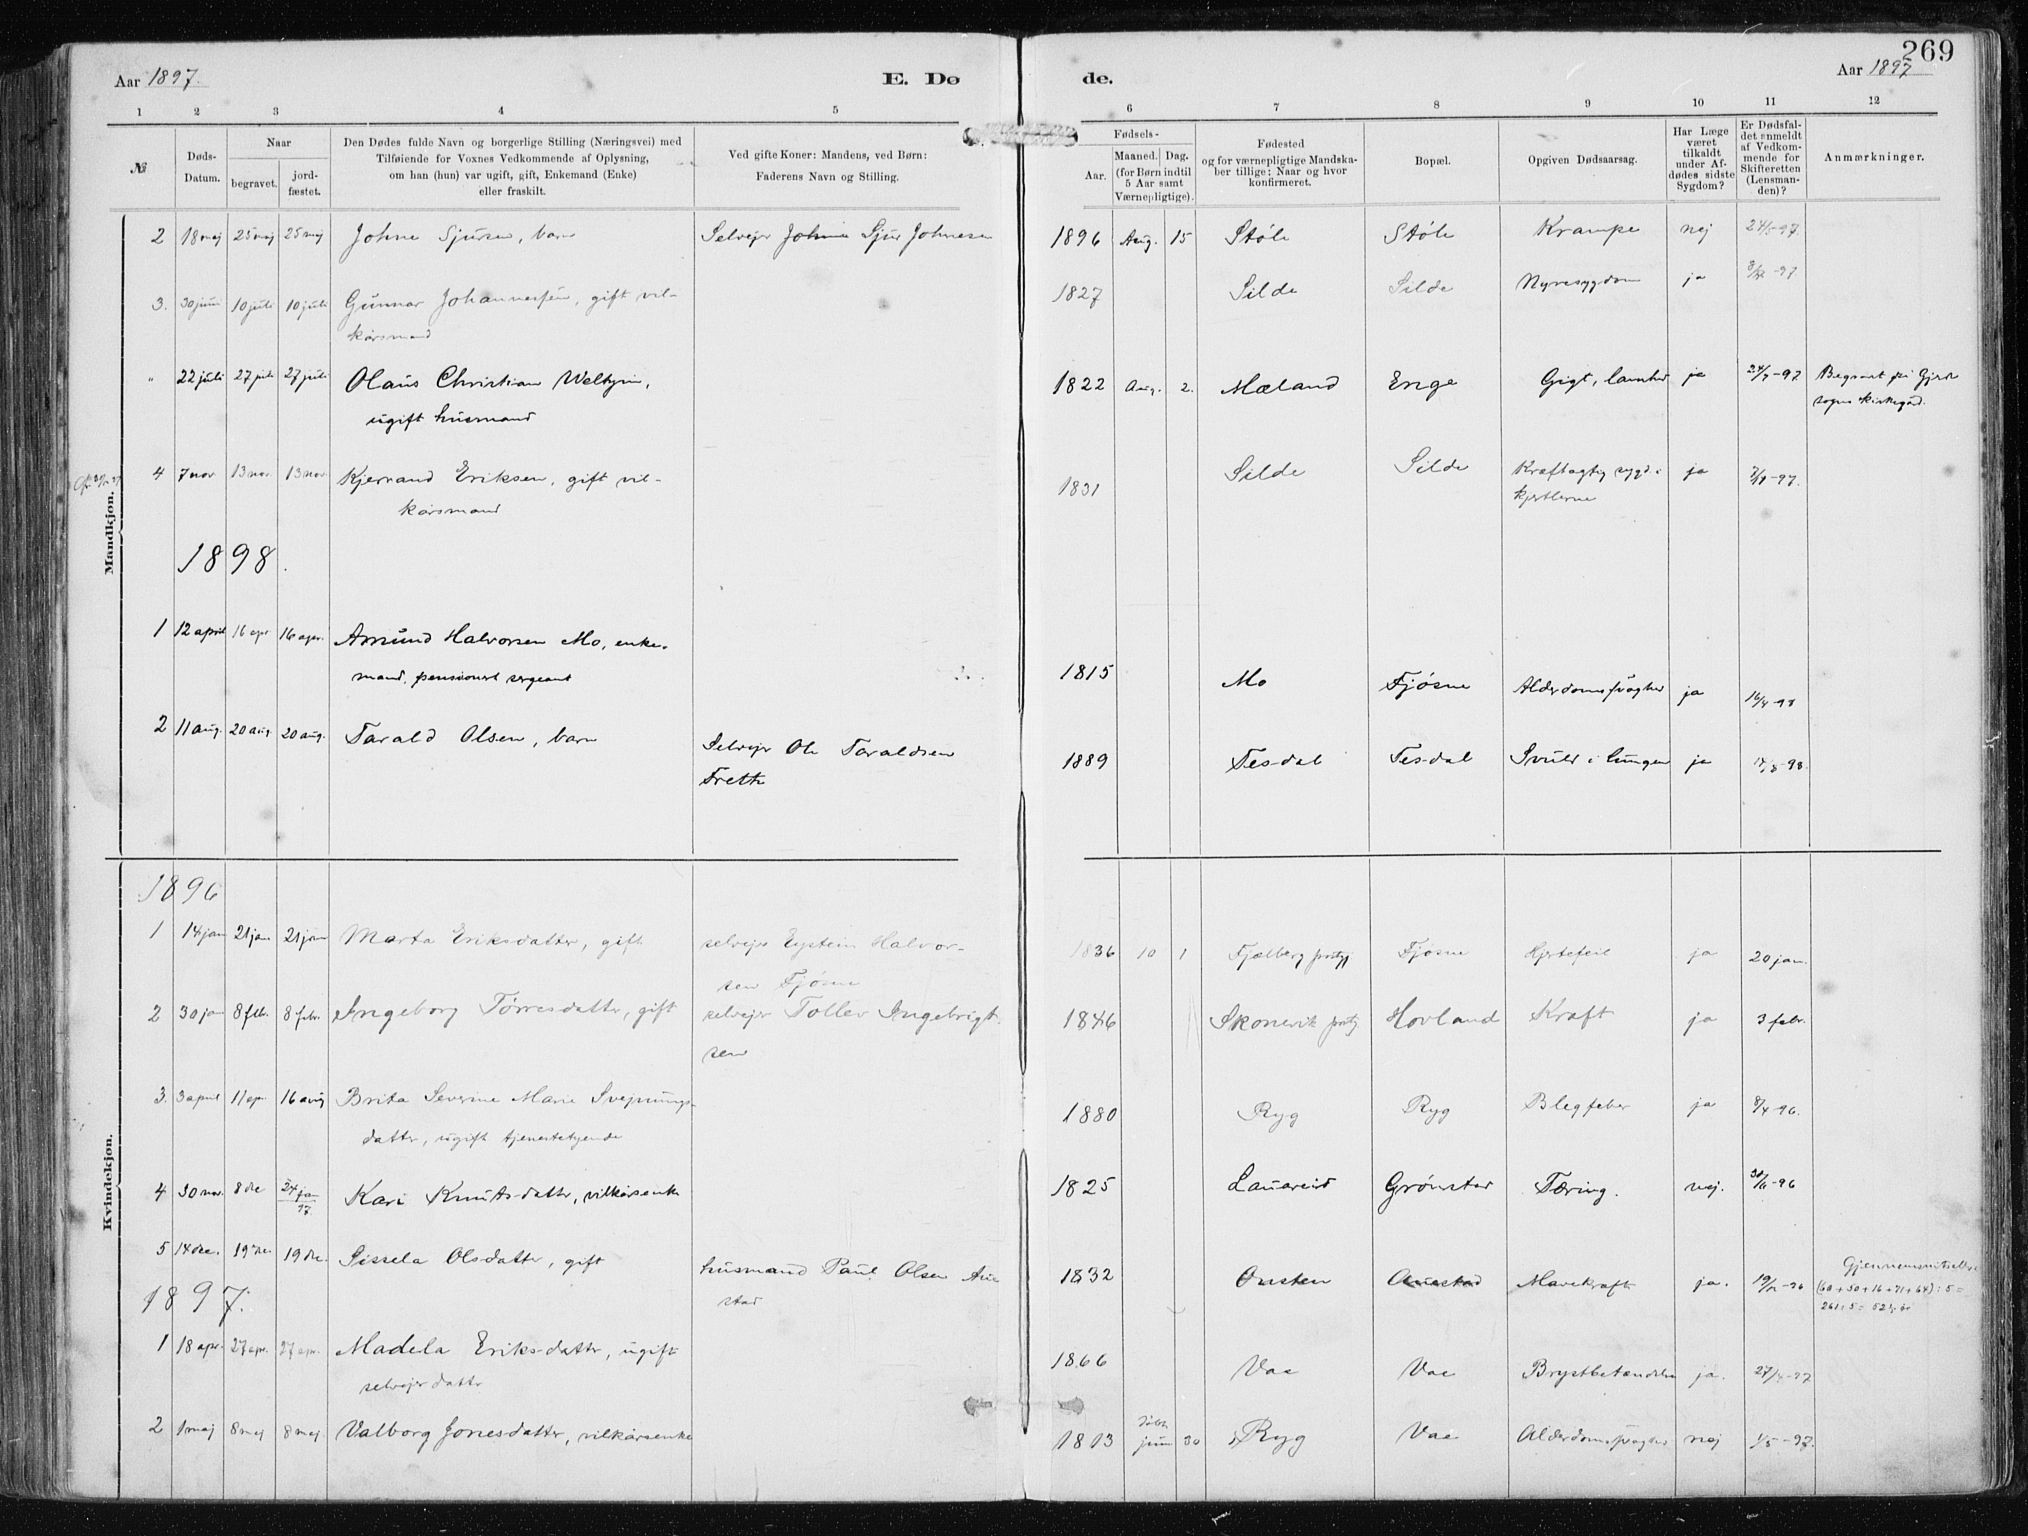 269
Aar 1897.
E. Dø
de.
Aar 1897
1 2 3 4 5 6 7 8 9 10 11 12
№
Døds-
Datum.
Naar
begravet.
jord-
fæstet.
Den Dødes fulde Navn og borgerlige Stilling (Næringsvei) med
Tilføiende for Voxnes Vedkommende af Oplysning,
om han (hun) var ugift, gift, Enkemand (Enke)
eller fraskilt.
Ved gifte Koner: Mandens, ved Børn:
Faderens Navn og Stilling.
Fødsels-
Aar.
Maaned. Dag.
(for Børn indtil
5 Aar samt
Værnepligtige).
Fødested
og for værnepligtige Mandska-
ber tillige: Naar og hvor
konfirmeret.
Bopæl.
Opgiven Dødsaarsag.
Har Læge
været
tilkaldt
under Af-
dødes sidste
Sygdom?
Er Dødsfal-
det anmeldt
af Vedkom-
mende for
Skifteretten
(Lensman-
den)?
Anmærkninger.
Mandkjøn.
2 18 maj 25 maj 25 maj Johne Sjursen, barn Selvejer Sjur Johnesen 1896 Aug. 15 Støle Støle Krampe nej 24/5-97.
3. 30 juni 10 juli 10 juli Gunnar Johannessen, gift vil- 1827 Silde Silde Nyresygdom ja
kårsmand
" 22 juli 27 juli 27 juli Olaus Christian Weltzin, 1822 Aug. 2. Mæland Enge Gigt, lamhed ja 24/7-97 Begravet på
ugift husmand sogns kirkegård.
4 7 nov 13 nov. 13 nov. Kjerrand Eriksen, gift vil- 1831 Silde Silde Kræftagtig sygd. i ja
kårsmand kjertlerne
1898.
1 12 april 16 apr 16 apr. Amund Halvorsen Mo, enke- 1815 Mo Fjøsne Alderdomssvaghed ja 16/4-98
mand, pensioneret sergeant
2 11 aug. 20 aug. 20 aug. Tarald Olsen, barn Selvejer Ole Taraldsen 1889 Tesdal Tesdal Svulst i lungen ja
Frette
Kvindekjøn.
1896
1 14 jan 21 jan 21 jan Marta Eriksdatter, gift selvejer Eystein Halvor- 1836 10 1 Fjelberg prstgj Fjøsne Hjertefeil ja 20 jan.
sen Fjøsne
2 30 jan 8 feb. 8 febr. Ingeborg Tørresdatter, gift selvejer Tollev Ingebrigt- 1846 Skonevik prstgj Hovland Kræft ja 3 febr.
sen
3. 3 april 11 apr. 16 aug Brita Severine Marie Svejnungs- 1880 Ryg Ryg Blegfeber ja 8/4-96.
datter, ugift tjenestetyende
4 30 nov. 8 de 24 jan 97. Kari Knutsdatter, vilkårsenke 1825 Lauareid Grønstad Tæring. nej.
5 14 de. 19 de. 19 de. Sissela Olsdatter, gift husmand Paul Olsen Aue- 1832 Onsten Auestad Mavekræft ja. 19/12-96 Gjennemsnitsalder:
stad (60+50+16+71+64):5=
261:5=52 1/5 år
1897.
1 18 apr. 27 apr. 27 apr. Madela Eriksdatter, ugift 1866 Vae Vae Brystbetændelse ja. 27/4-97
selvejerdatter
2 1 maj 8 maj 8 maj Valborg Jonesdatter, vilkårsenke 1813 døbt juni 30 Ryg Vae Alderdomssvaghed nej 1/5-97.